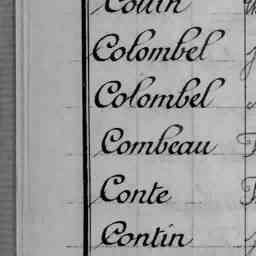 Collin
Colombel
Colombel
Combeau
Conte
Contin